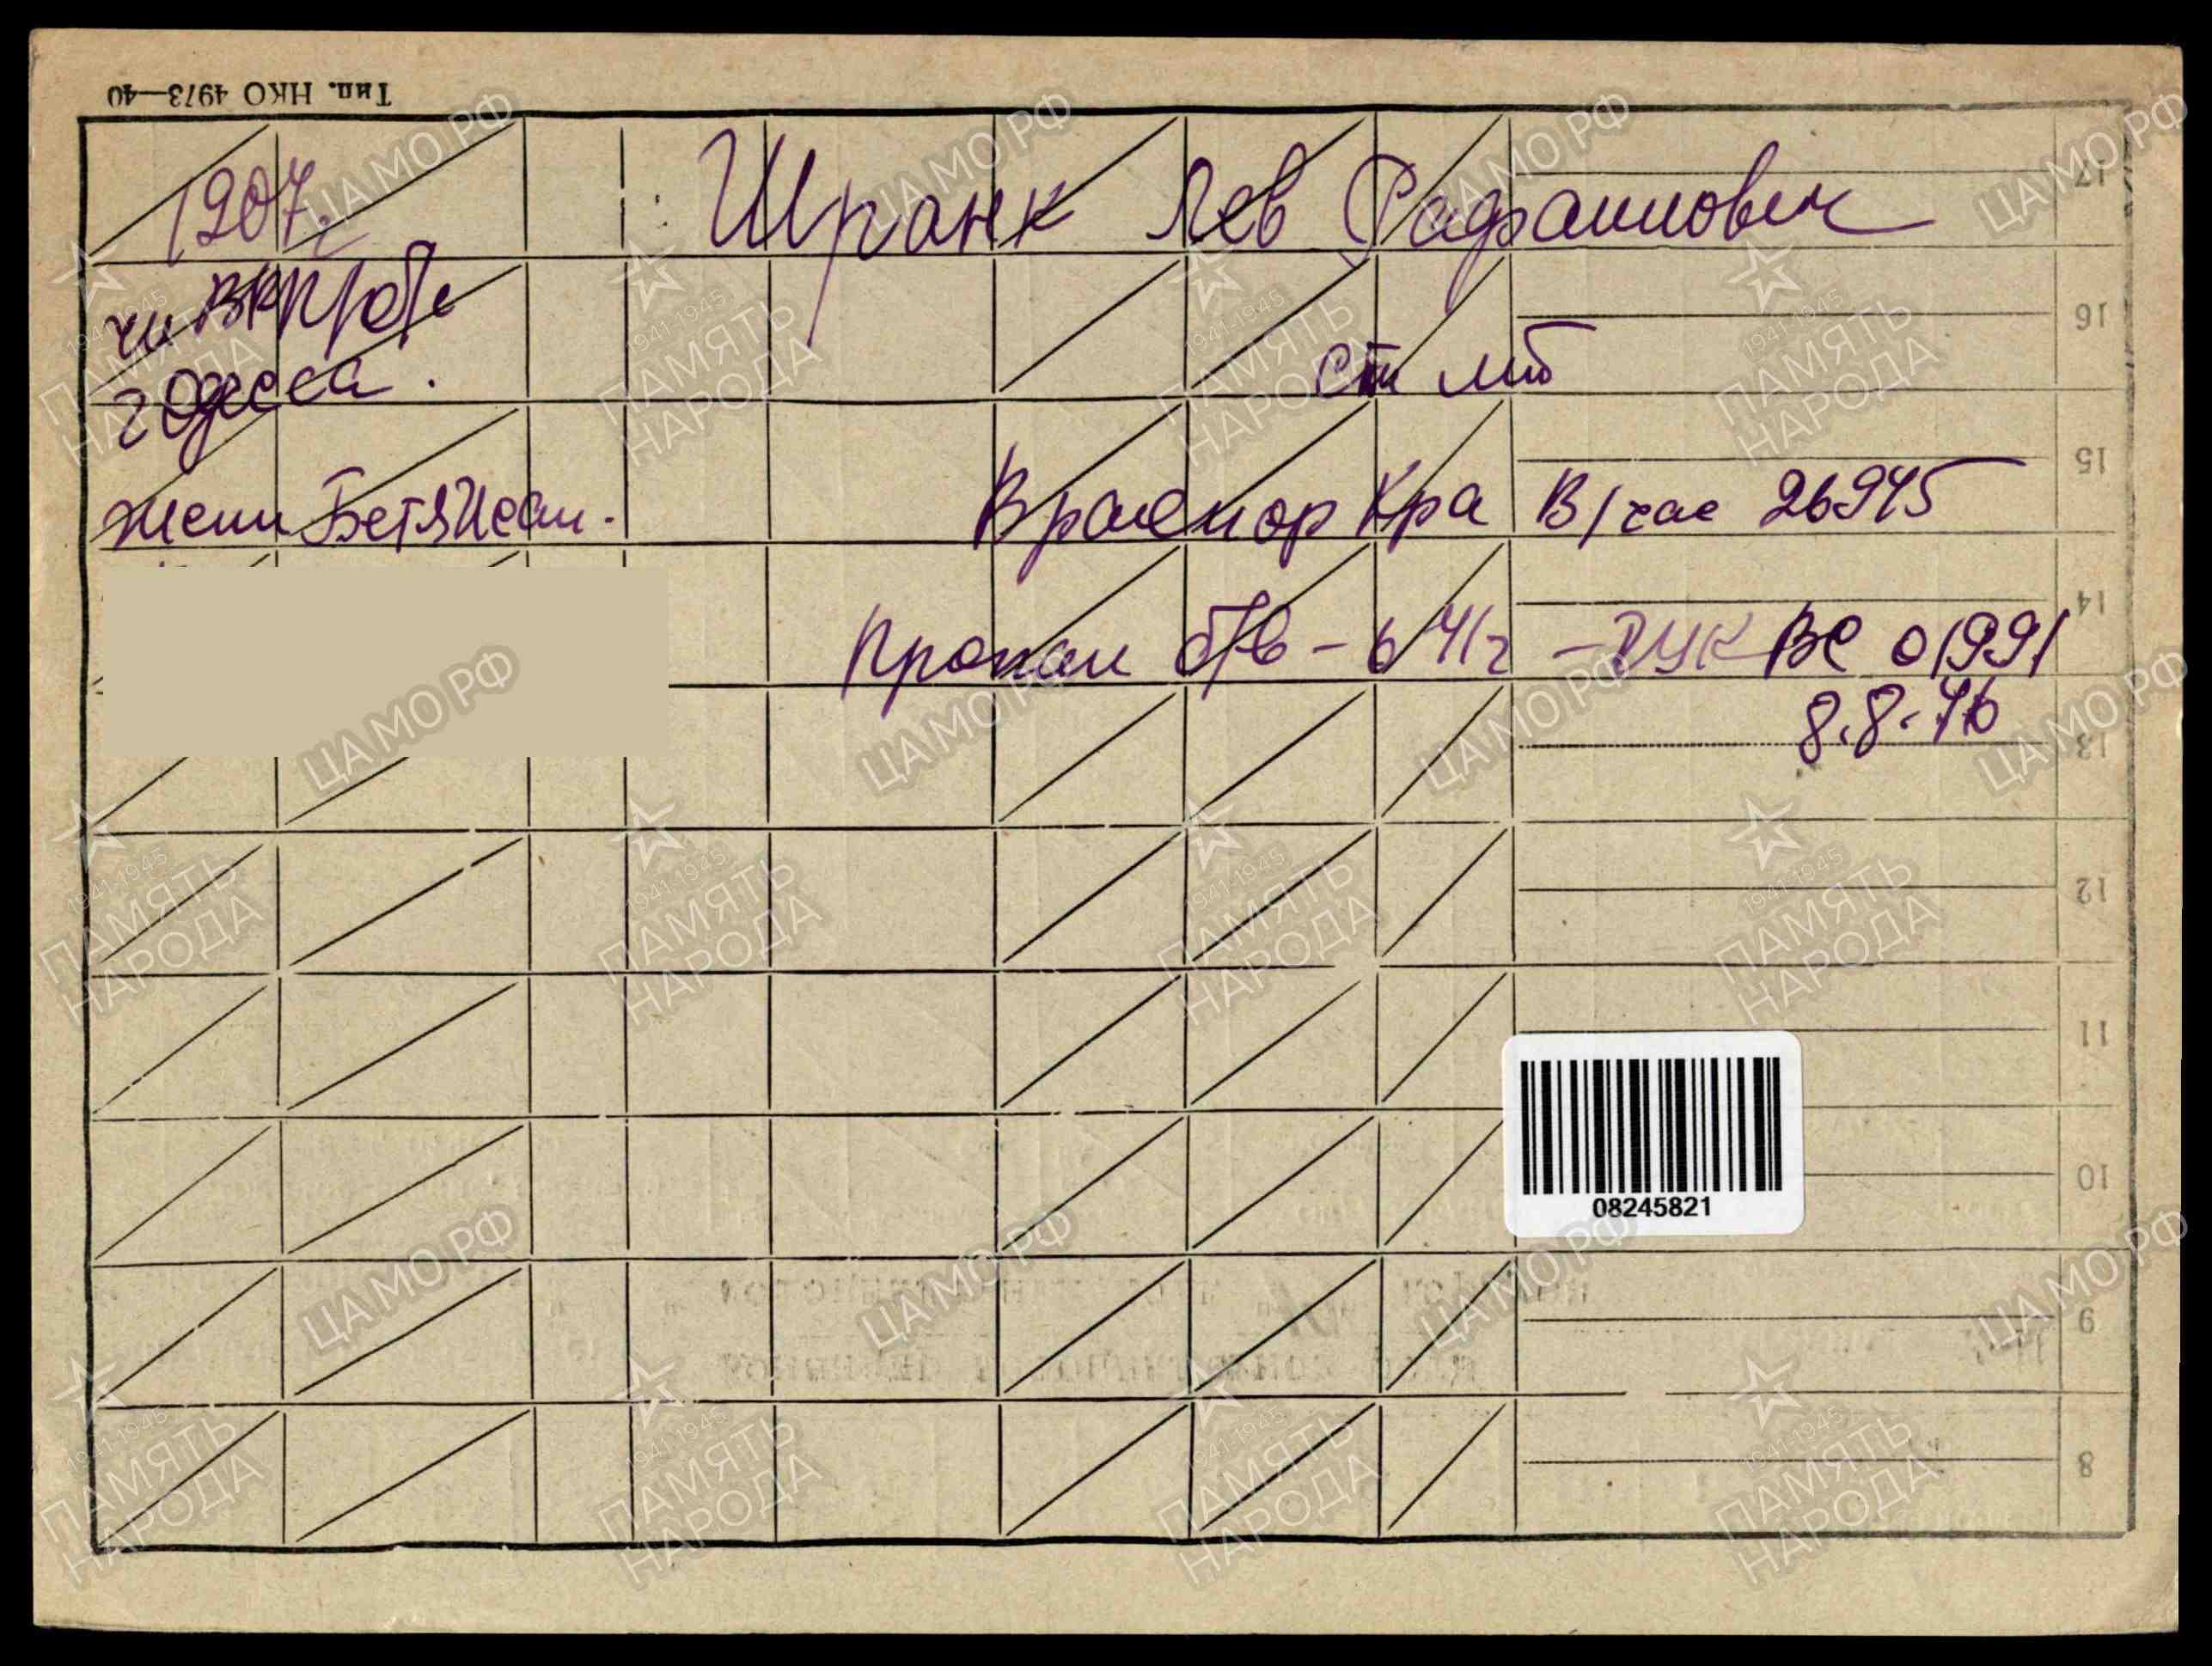 Тип. НКО 4973—40
1907 г. Шранк Лев Рафаилович
чл ВКП/б/с
г Одесса. Ст
жена Бетя Исаак. Врио ком Кра В/час 26945
Пропал б/в - в 41 г - ГУК ВС 01991
8.8.46
17
16
15
14
13
12
11
10
9
8
08245821
ЦАМО.РФ
1941-1945
ПАМЯТЬ
НАРОДА